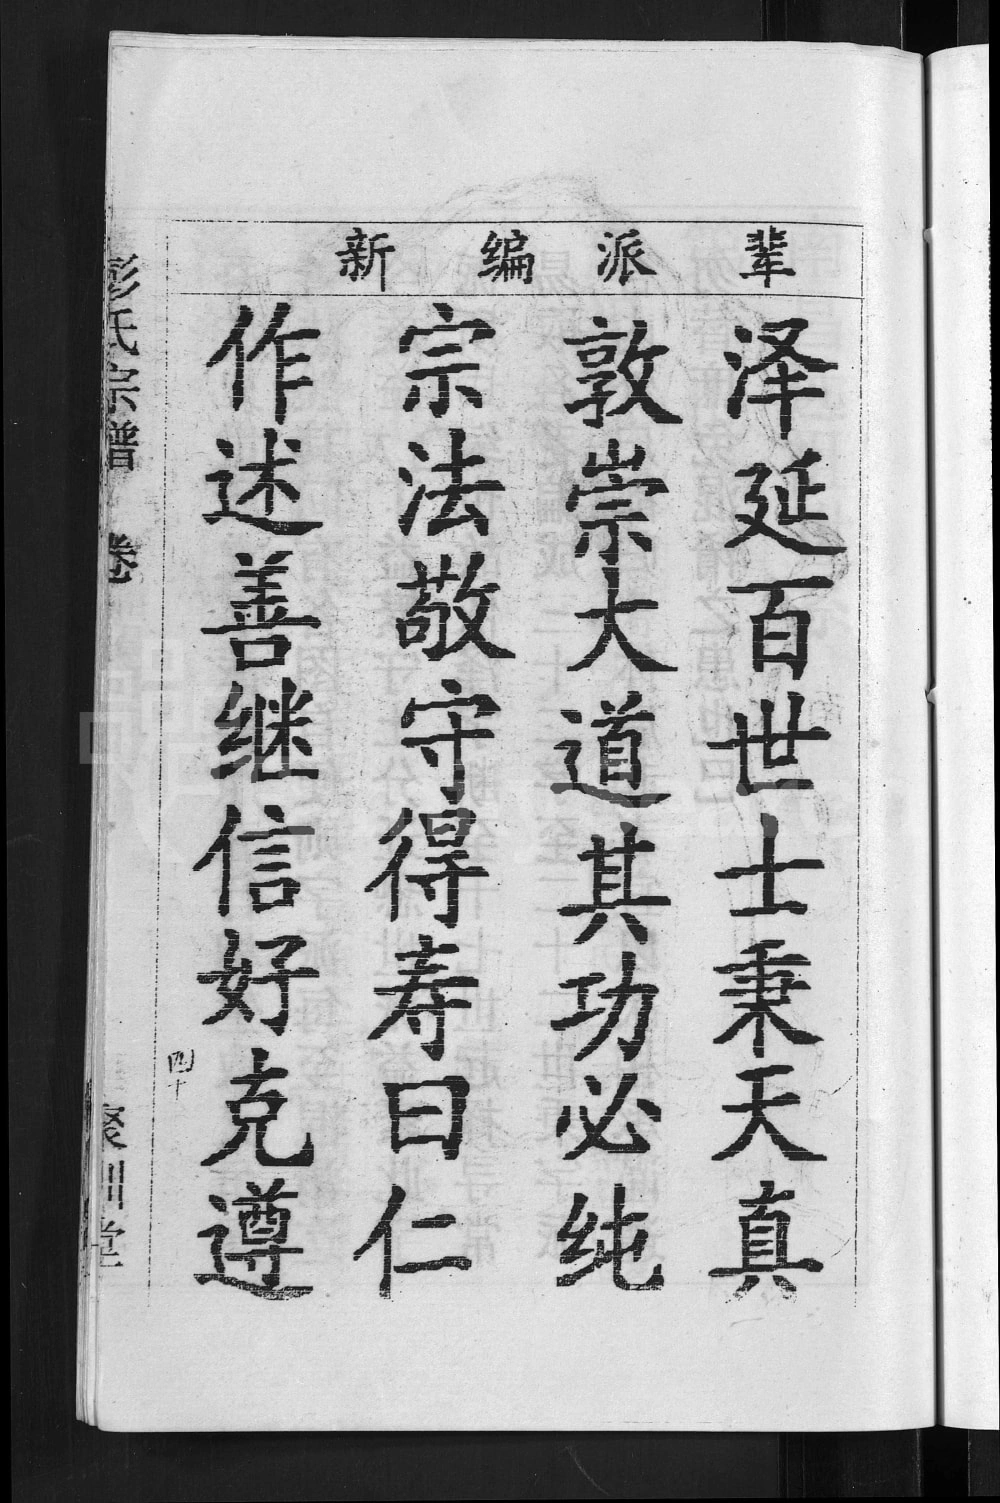 新编派辈
泽延百世士秉天真
敦崇大道其功必纯
宗法敬守得寿曰仁
作述善继信好克遵
彭氏宗谱 卷
四十
聚训堂